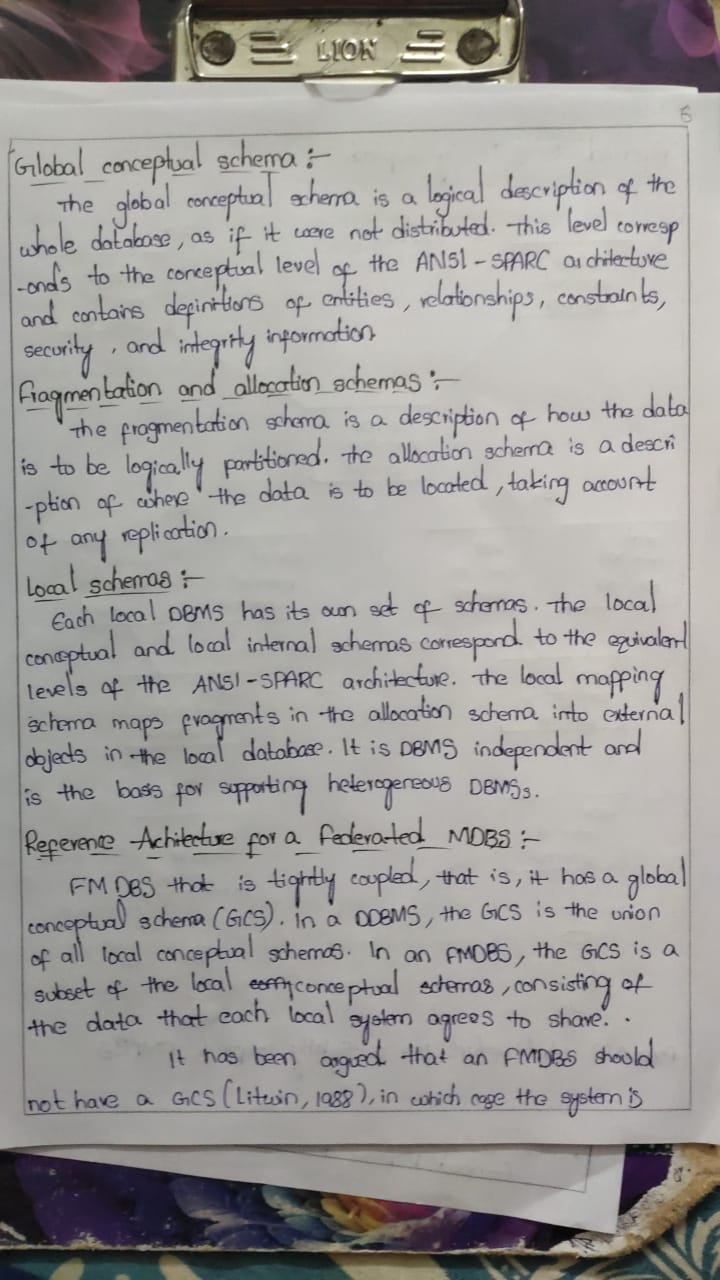 LION
6
Global conceptual schema :-
The global conceptual schema is a logical description of the
whole database, as if it were not distributed. This level corresp
-onds to the conceptual level of the ANSI-SPARC architecture
and contains definitions of entities, relationships, constraints,
security, and integrity information
Fragmentation and allocation schemas :-
The fragmentation schema is a description of how the data
is to be logically partitioned. The allocation schema is a descri
-ption of where the data is to be located, taking account
of any replication.
Local schemas :-
Each local DBMS has its own set of schemas. The local
conceptual and local internal schemas correspond to the equivalent
levels of the ANSI-SPARC architecture. The local mapping
schema maps fragments in the allocation schema into external
objects in the local database. It is DBMS independent and
is the basis for supporting heterogeneous DBMSs.
Reference Achitecture for a Federated MDBS :-
FMDBS that is tightly coupled, that is, it has a global
conceptual schema (GCS). In a DDBMS, the GCS is the union
of all local conceptual schemas. In an FMDBS, the GCS is a
subset of the local conceptual schemas, consisting of
the data that each local system agrees to share.
It has been argued that an FMDBS should
not have a GCS (Litwin, 1988), in which case the system is